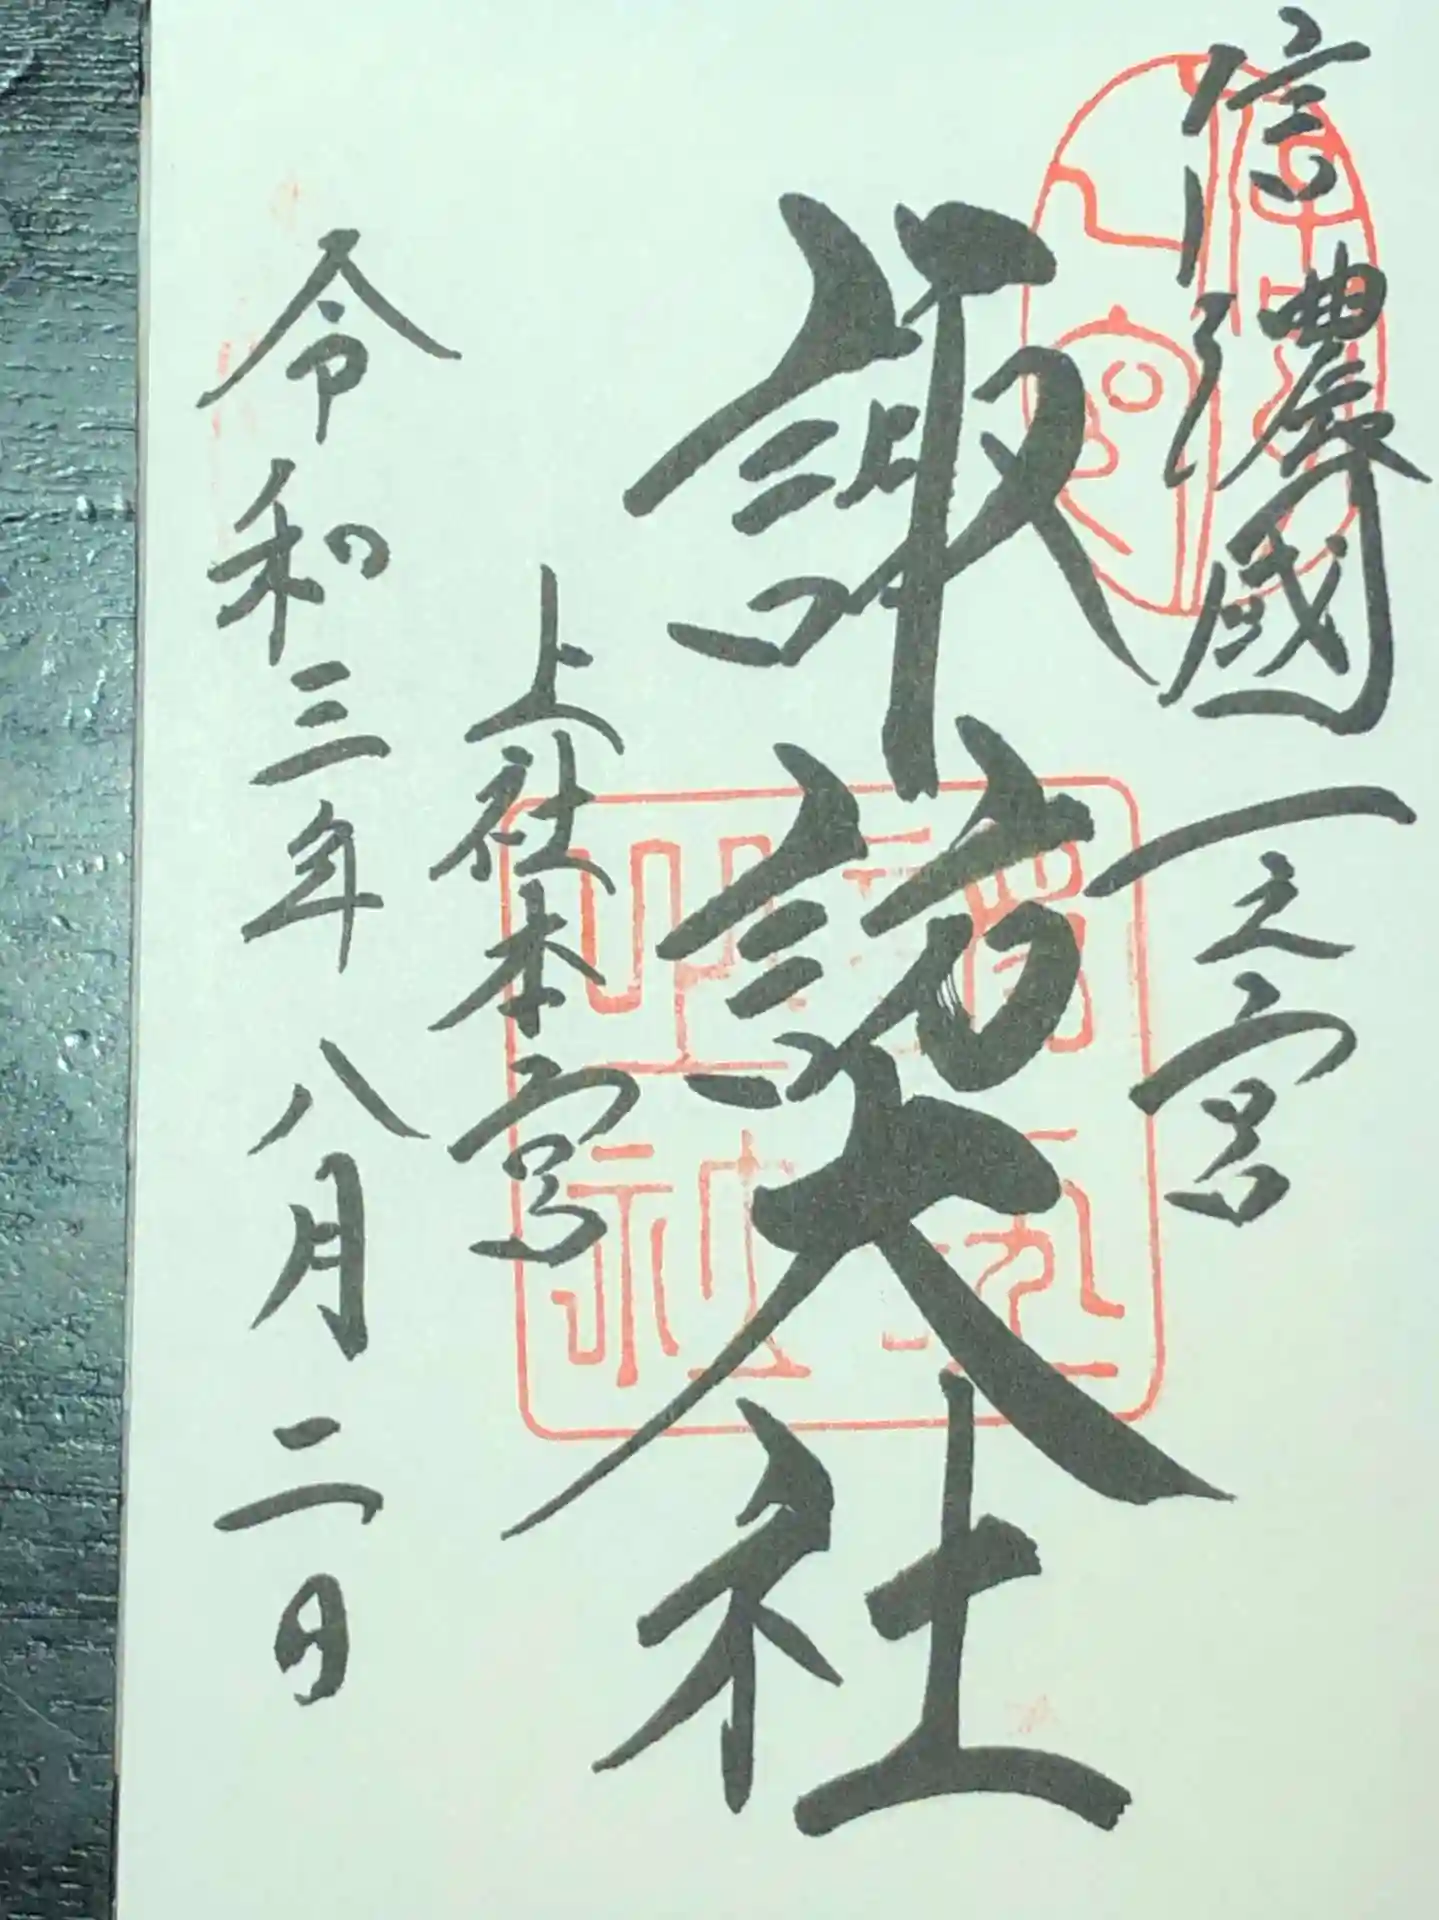 信濃國一之宮
諏訪大社
上社本宮
令和三年八月二日